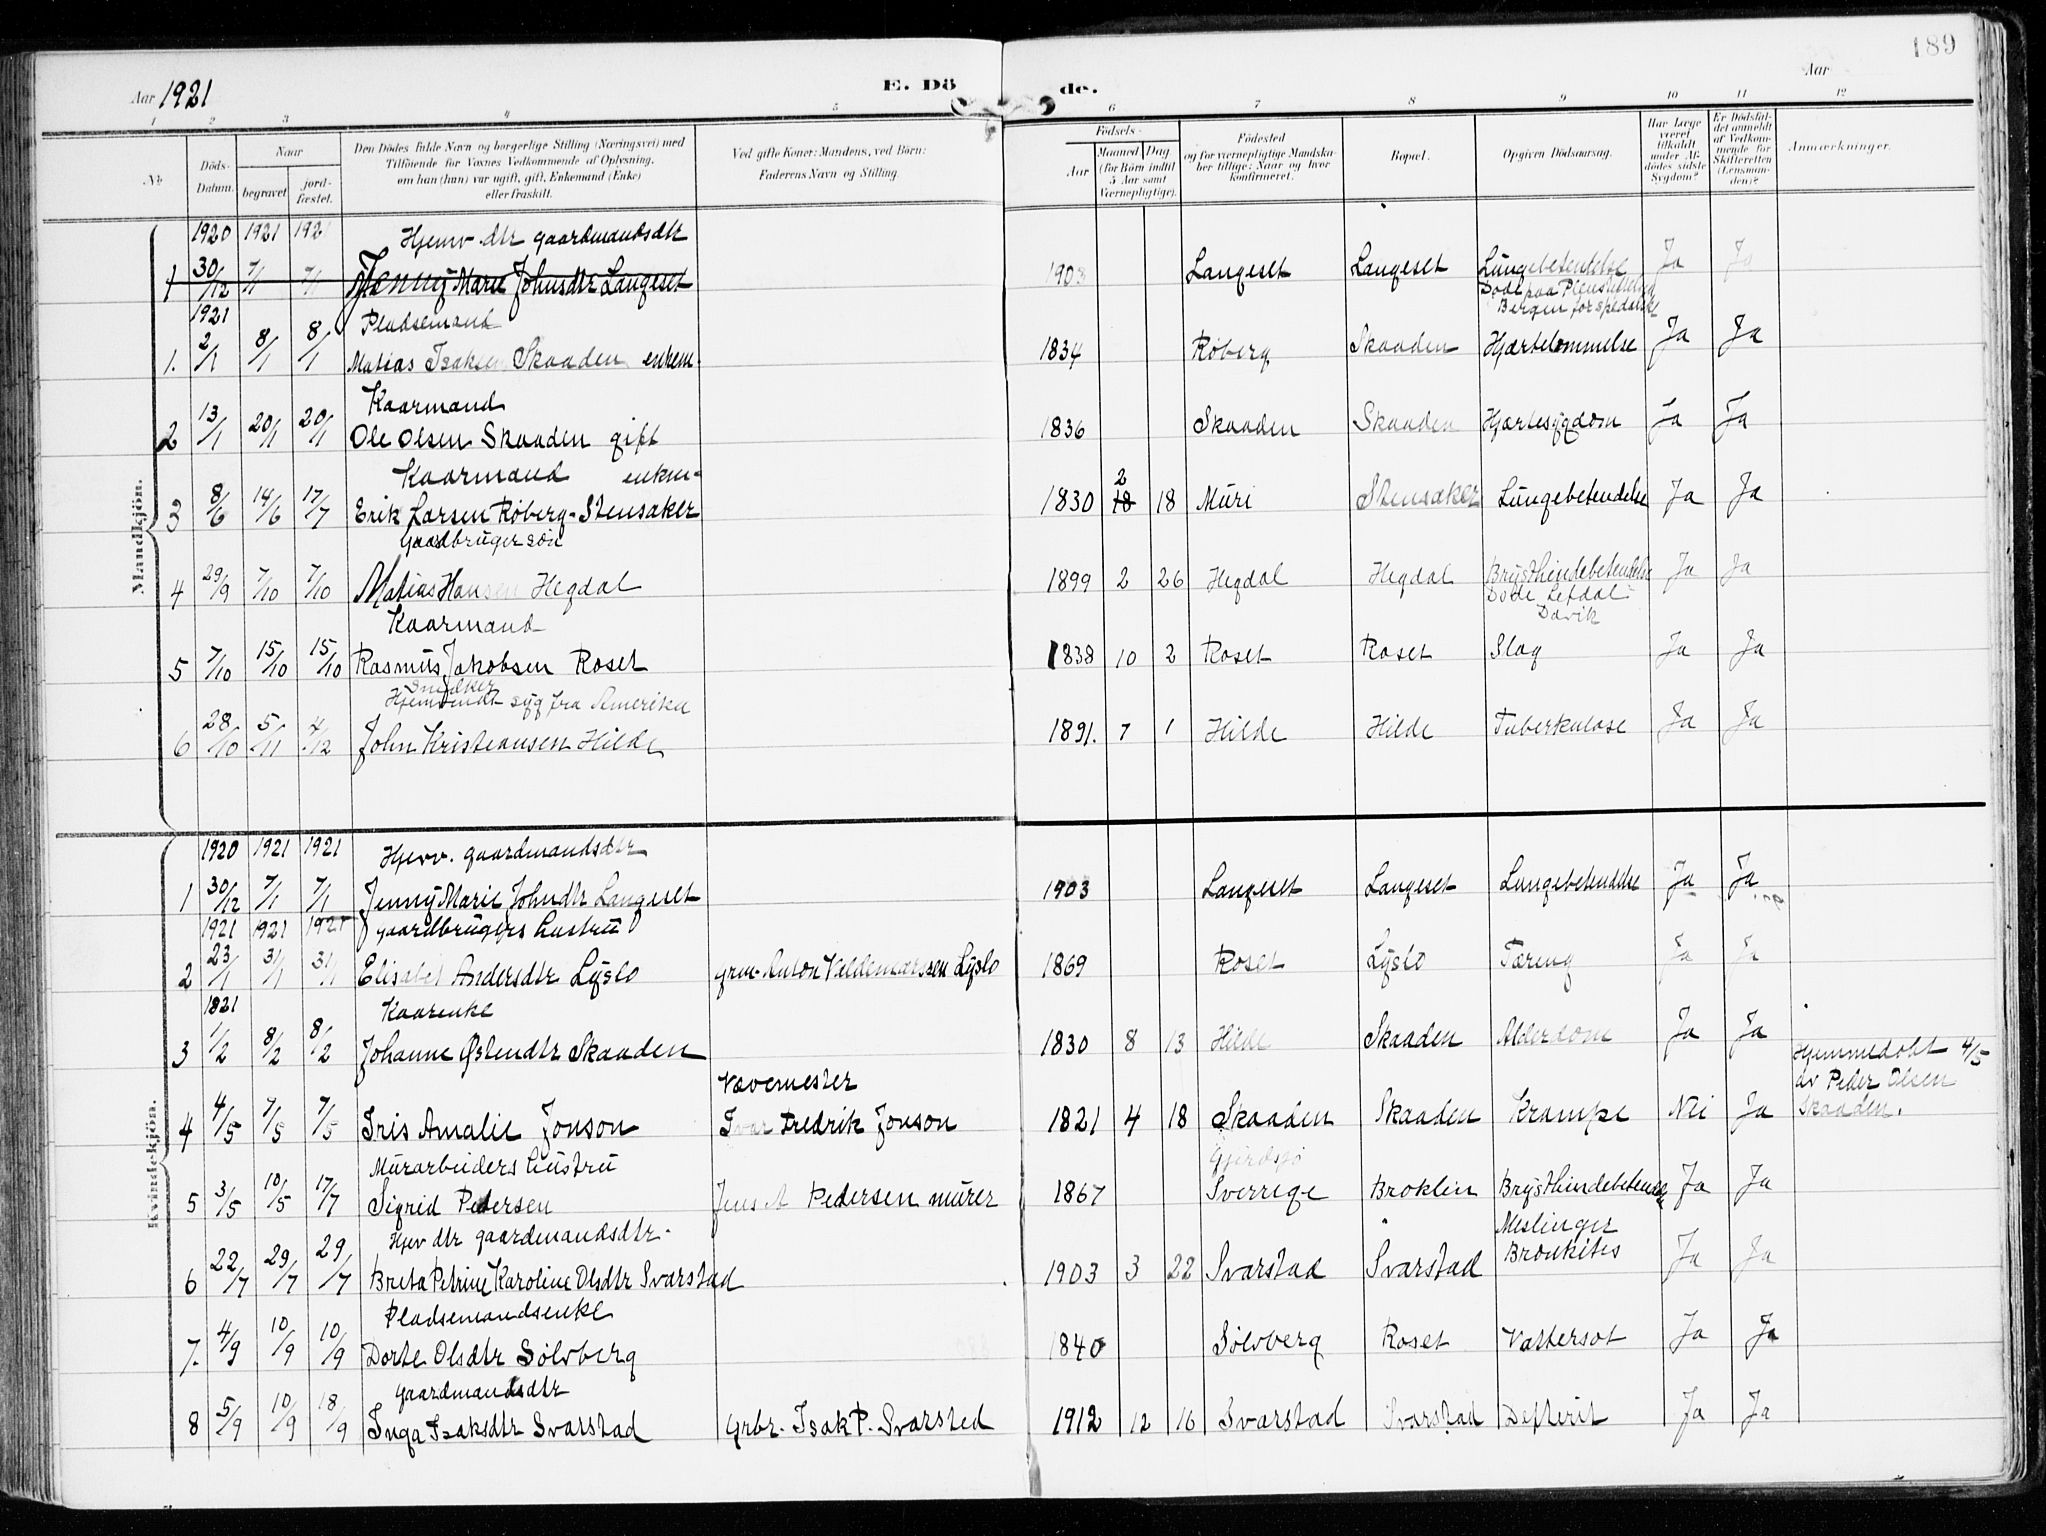 189
Aar 1921
E. Dö de.
Aar
1 2 3 4 5 6 7 8 9 10 11 12
No
Döds-Datum.
Naar
begravet
jord-fæstet.
Den Dödes fulde Navn og borgerlige Stilling (Næringsvei) med
Tilföiende for Voxnes Vedkommende af Oplysning,
om han (hun) var ugift, gift, Enkemand (Enke)
eller fraskilt.
Ved gifte Koner: Mandens, ved Börn:
Faderens Navn og Stilling.
Födsels-
Aar
Maaned Dag
(for Börn indtil
5 Aar samt
Værnepligtige).
Födested
og for værnepligtige Mandska-
ber tillige: Naar og hvor
konfirmeret.
Bopæl.
Opgiven Dödsaarsag.
Har Læge
været
tilkaldt
under Af-
dödes sidste
Sygdom?
Er Dödsfal-
det anmeldt
af Vedkom-
mende for
Skifteretten
(Lensman-
den)?
Anmærkninger.
Mandkjön.
1920 1921 192 Hjemv. dtr gaardmandsdtr
1 30/12 7/1 7/1 Jenny Marie Johnsdtr Langeset 1903 Langeset Langeset Lungebetendelse Ja Ja
Döde paa Pleiestiftelsen
Bergen for spedalske
1921 Pladsemand
1. 2/1 8/1 8/1 Matias Isaksen Skaaden enkem. 1834 Røberg Skaaden Hjærtelammelse Ja Ja
Kaarmand
2 13/1 20/1 20/1 Ole Olsen Skaaden gift 1836 Skaaden Skaaden Hjærtesygdom Ja Ja
Kaarmand enkm-
3 8/6 14/6 17/7 Erik Larsen Røberg-Stensaker 1830 2 18 18 Muri Stensaker Lungebetendelse Ja Ja
Gaardbruger søn
4 29/9 7/10 7/10 Matias Hansen Hegdal 1899 2 26 Hegdal Hegdal Brysthindebetendelse Ja Ja
Døde Lefdal
Davik
Kaarmand
5 7/10 15/10 15/10 Rasmus Jakobsen Roset 1838 10 2 Roset Roset Slag Ja Ja
Snedker
Hjemvendt syg fra Amerika
6 28/10 5/11 4/12 John Kristiansen Hilde 1891. 7 1 Hilde Hilde Tuberkulose Ja Ja
Kvindekjön.
1920 1921 1921 Hjevv. gaardmandsdtr
1 30/12 7/1 7/1 Jenny Marie Johndtr Langeset 1903 Langeset Langeset Lungebetendelse Ja Ja
1921 1921 1921 gaardbrugers hustru
2 23/1 31/1 31/1 Elisabet Andersdtr Lyslo grm. Anton Valdemarssen Lyslo 1869 Roset Lyslo Tæring Ja Ja
1821 Kaarenke
3 1/2 8/2 8/2 Johanne Østendtr Skaaden 1830 8 13 Hilde Skaaden Alderdom Ja Ja
Vævemester
Hjemmedøbt 4/5
av Peder Olsen
4 4/5 7/5 7/5 Iris Amalie Jonson Ivar Fredrik Jonson 1821 4 18 Skaaden Skaaden Krampe Nei Ja Skaaden.
Murarbeiders hustru
5 3/5 10/5 17/7 Sigrid Pedersen Jens A Pedersen murer 1867 Sverrige Broklin Brysthindebetendelse Ja Ja
Hjev dtr gaardmandsdtr. Meslinger
6 22/7 29/7 29/7 Breta Petrine Karoline Olsdtr Svarstad 1903 3 22 Svarstad Svarstad Bronkites Ja Ja
Pladsemandsenke
7. 4/9 10/9 10/9 Dorte Olsdtr Sølvberg 1840 Sølvberg Roset Vattersot Ja Ja
gaardmandsdtr
8 5/9 10/9 18/9 Inga Isaksdtr Svarstad Grbr. Isak P. Svarsted 1912 12 16 Svarstad Svarstad Defterit Ja Ja